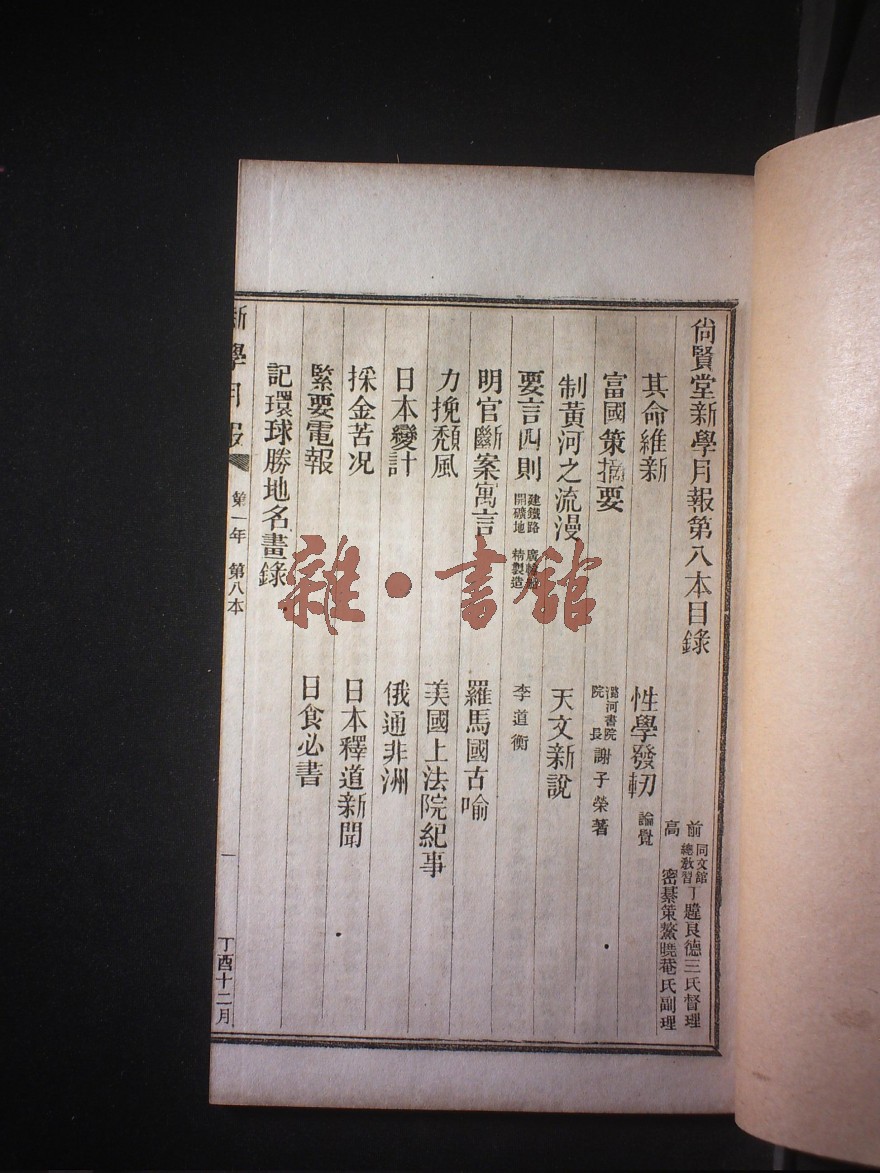 尙賢堂新學月報第八本目錄
前同文館總敎習丁韙良德三氏督理
高密綦策鰲曉菴氏副理
其命維新
性學發軔 論覺
富國策摘要
潞河書院院長謝子榮著
制黃河之流漫
天文新說
要言四則 建鐵路 開礦地 精製造
李道衡
明官斷案寓言
羅馬國古喻
力挽頽風
美國上法院紀事
日本變計
俄通非洲
採金苦况
日本釋道新聞
緊要電報
日食必書
記環球勝地名畫錄
新學月報 第一年 第八本 一 丁酉十二月
雜·書館